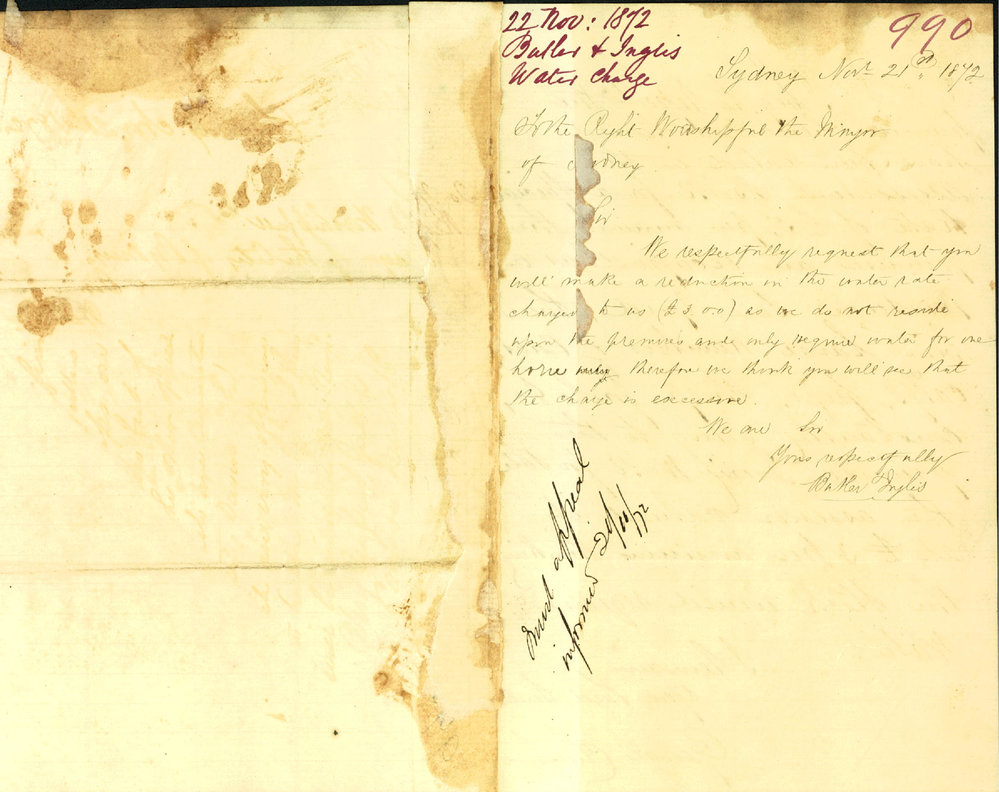 22 Nov: 1872
Butler & Inglis
Water Charge
990
Sydney Novr 21st 1872
To the Right Worshipful the Mayor
of Sydney
Sir
We respectfully request that you
will make a reduction in the water rate
charged to us (£3.0.0) as we do not reside
upon the premises and only require water for one
horse therefore we think you will see that
the charge is excessive.
We are Sir
Yours respectfully
Butler & Inglis
Must appeal
informed 29/11/72